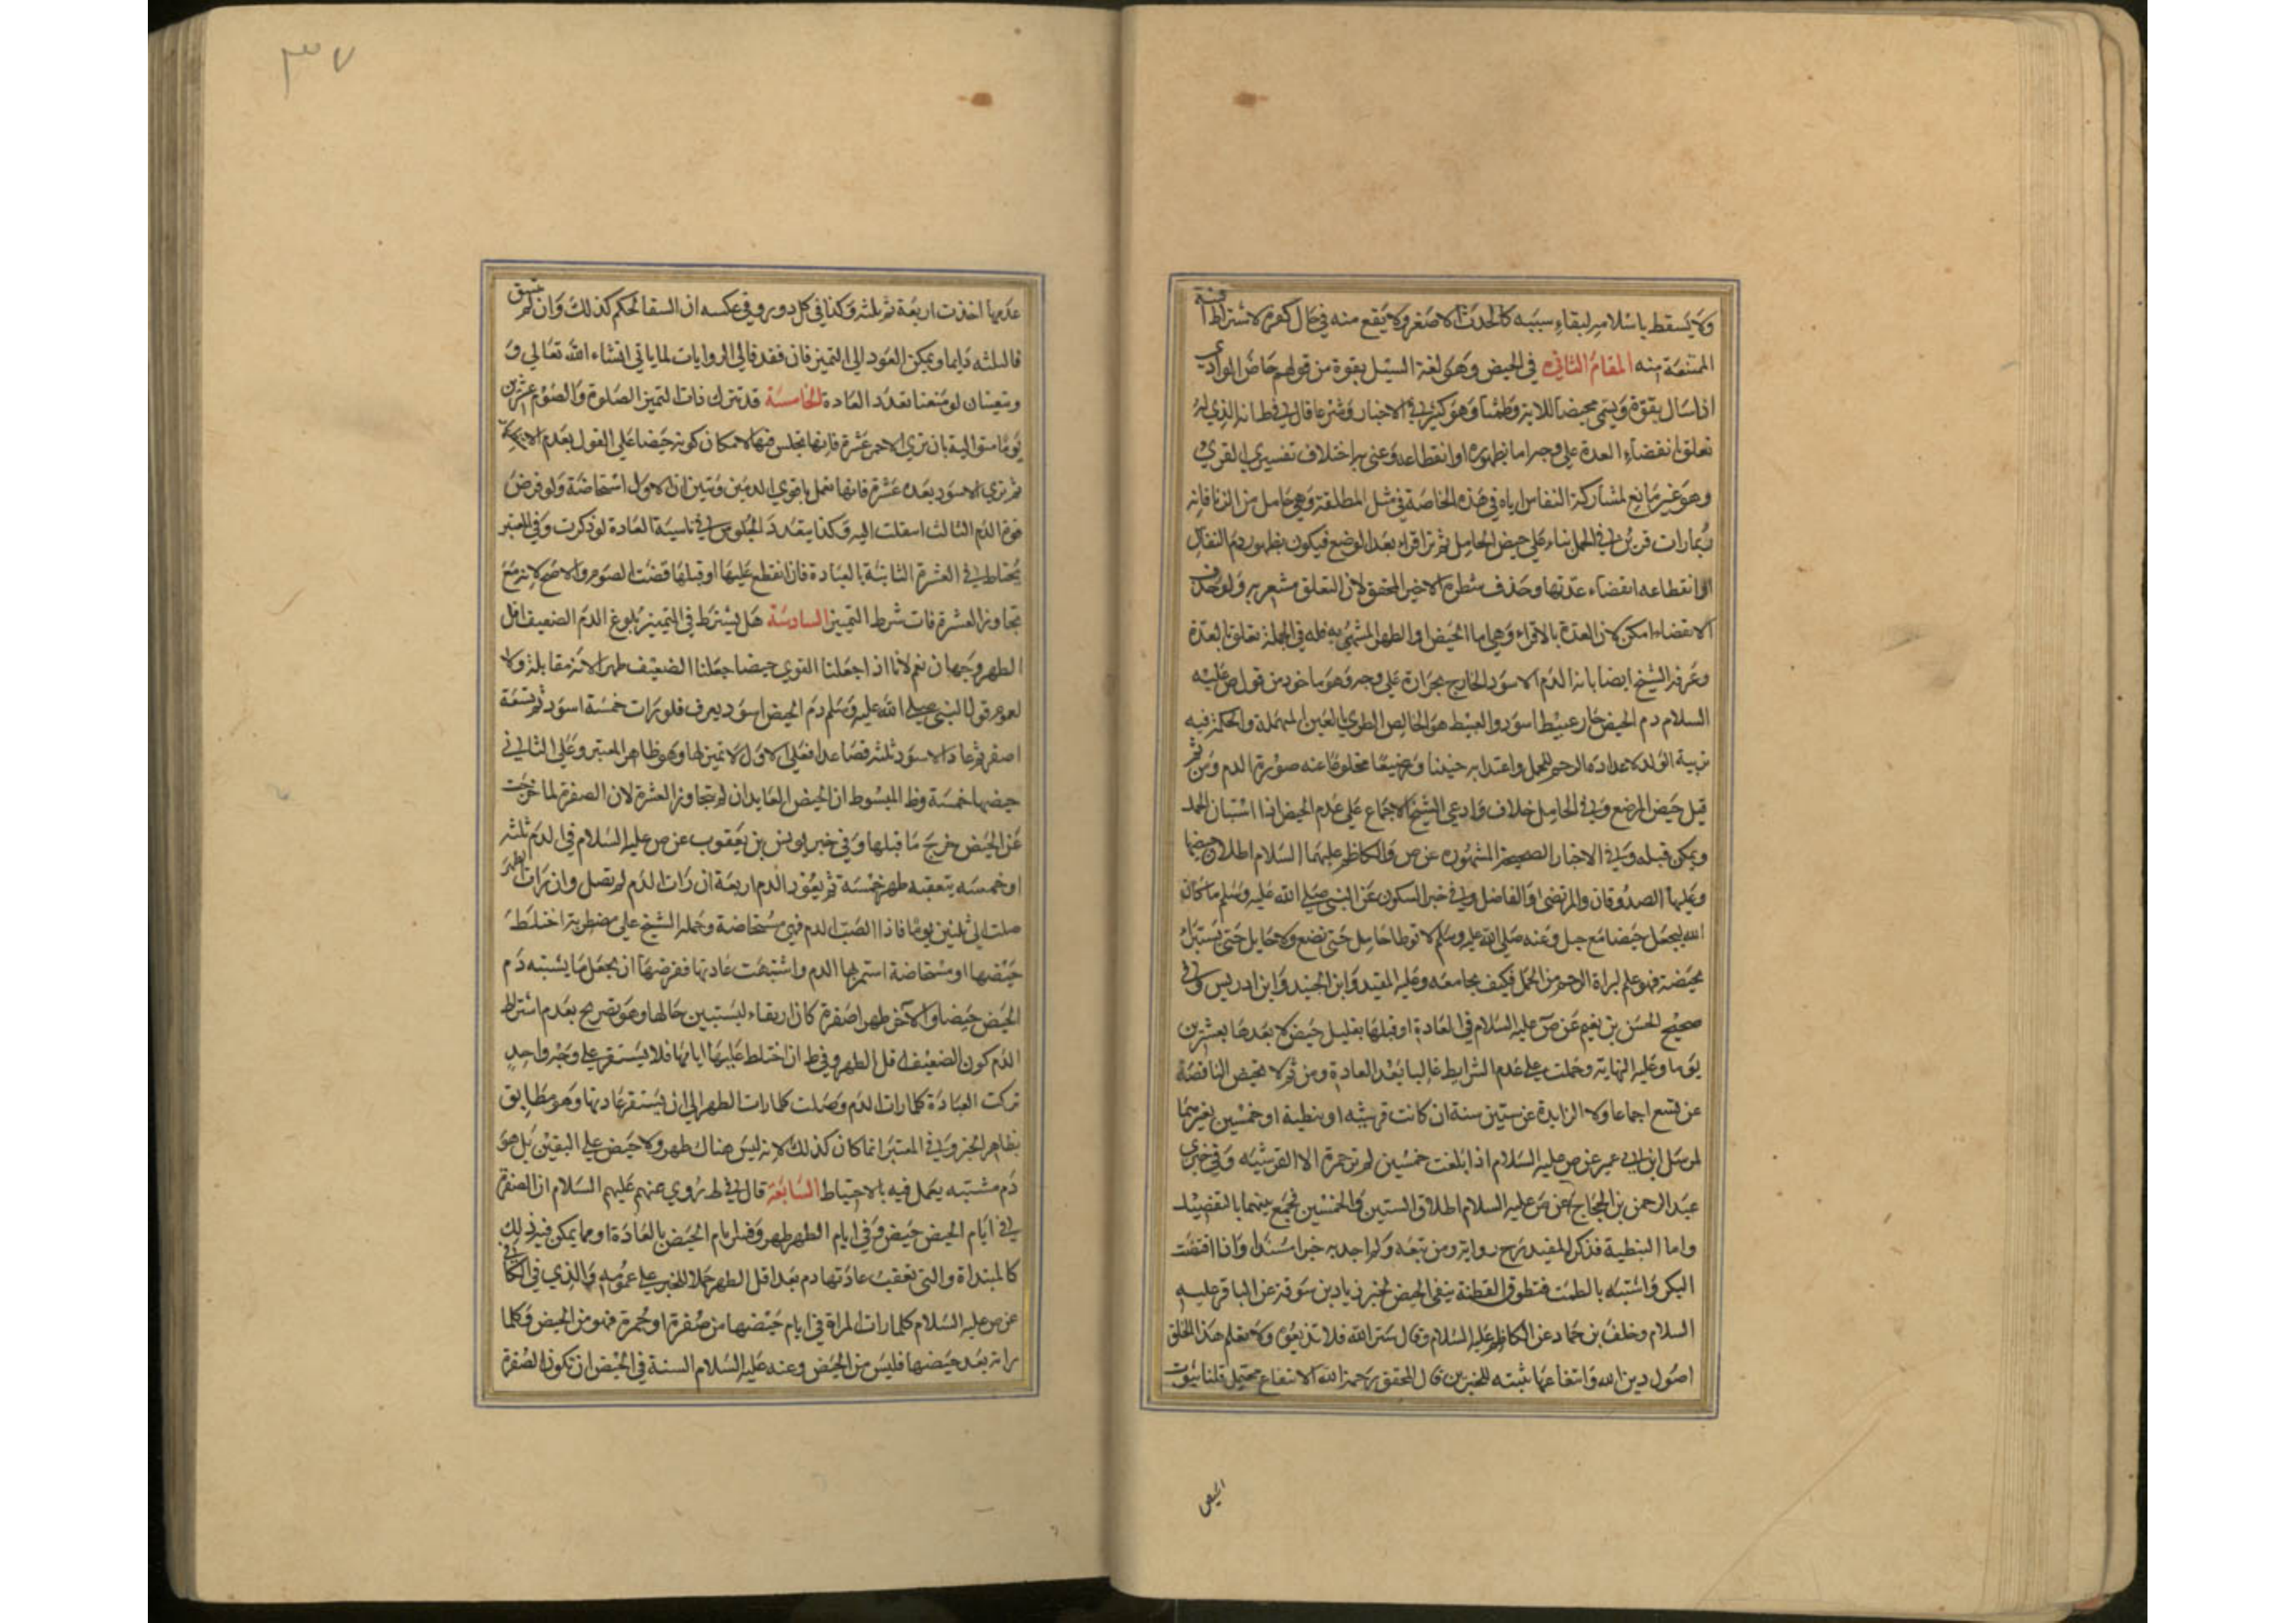 ولا يسقط باسلامه لبقاء سببه كالحدث الاصغر ولا يقع منه في حال كفره لاشتراط القربة
الممتنعة منه المقام الثاني في الحيض وهو لغة السيل بقوة من قولهم حاض الوادي
اذا سال بقوة ويسمى محيضا للاية وطمثا وهو كثير في الاخبار وشرعا قال في ط انه الذي له
تعلق بانقضاء العدة على وجه اما بظهوره او انقطاعه وعنى به اختلاف تفسيري القرء
وهو غير مانع لمشاركة النفاس اياه في هذه الخاصة في مثل المطلقة وهي حامل من الزنا فانه
ربما رات قرئين في الحمل بناء على حيض الحامل ثم ترا قراء بعد الوضع فيكون بظهور دم النفاس
او انقطاعه انقضاء عدتها وحذف شطره الاخير المحقق لان التعلق مشعر به ولو حذف
الانقضاء امكن لان العدة بالاقراء وهي اما الحيض او الطهر المشهي به فله في الجملة تعلق بالعدة
وعرفه الشيخ ايضا بانه الدم الاسود الخارج بحرارة على وجه وهو ماخوذ من قول ص عليه
السلام دم الحيض حار عبيط اسود والعبيط هو الخالص الطري بالعين المهملة والحكمة فيه
تربية الولد لاعداده الرحم للحمل واغتذا به جنينا ورضيعا مخلوعا عنه صورة الدم ومن ثم
قيل حيض المرضع وفي الحامل خلاف وادعى الشيخ الاجماع على عدم الحيض اذا استبان الحمل
ويمكن قبله وفي الاخبار الصحيحة المشهورة عن ص والكاظم عليهما السلام اطلاق حيضها
وعليها الصدوقان والمرتضى والفاضل وفي خبر السكوني عن النبي صلى الله عليه وسلم ما كان
الله ليجعل حيضا مع حبل وعنه صلى الله عليه وسلم لا توطا حامل حتى تضع ولا حايل حتى تستبرا
بحيضة فهو علم لبراة الرحم من الحمل فكيف يجامعه وعليه المفيد وابن الجنيد وابن ادريس وفي
صحيح الحسن بن نعيم عن ص عليه السلام في العادة او قبلها بقليل حيض لا بعدها بعشرين
يوما وعليه النهاية وحملت على عدم الشرايط غالبا بعد العادة ومن ثم لا تحيض الناقصة
عن تسع اجماعا ولا الزايدة عن ستين سنة ان كانت قرشية او نبطية او خمسين لغيرهما
لمرسل ابن ابي عمير عن ص عليه السلام اذا بلغت خمسين لم تر حمرة الا القرشية وفي خبري
عبد الرحمن بن الحجاج عن ص عليه السلام اطلاق الستين والخمسين فجمع بينهما بالتفصيل
واما النبطية فذكرها المفيد رح رواية ومن تبعه ولم اجد به خبرا مسندا واذا افتضت
البكر واشتبه بالطمث فتطوق القطنة ينفي الحيض لخبر زياد بن سوقة عن الباقر عليه
السلام وخلف بن حماد عن الكاظم عليه السلام وقال ستر الله فلا تذيعوه ولا تعلم هذا الخلق
اصول دين الله وانتفاعها ثبته للخبرين قال المحقق رحمه الله الانتفاع محتمل قلنا بثبوت
الحيض
٣٧
عدمها اخذت اربعة ثم ثلثه وكذا في كل دور وفي عكسه ان اتسقا الحكم كذلك وان لم يتسق
فالثلثه دايما ويمكن العود الى التميز فان فقد فالى الروايات لما ياتي انشاء الله تعالى و
ويتعينان لو منعنا تعدد العادة الخامسة قد تترك ذات التميز الصلوة والصوم عشرين
يوما متوالية بان تري الاحمر عشرة فانها تجلس فيها لامكان كونه حيضا على القول بعدم
ثم تري الاسود بعده عشرة فانها تعمل باقوي الدمين وتبين ان الاول استحاضة ولو فرض
قوة الدم الثالث انتقلت اليه وكذا يتعدد الجلوس في ناسية العادة لو ذكرت وفي المعتبر
يحتاط في العشرة الثانية بالعبادة فان انقطع عليها او قبلها قضت الصوم والاصح لانه مع
تجاوز العشرة فات شرط التميز السادسة هل يشترط في التمييز بلوغ الدم الضعيف اقل
الطهر وجهان نعم لانا اذا جعلنا القوي حيضا جعلنا الضعيف طهرا لانه مقابله ولا
لعموم قول النبي صلى الله عليه وسلم دم الحيض اسود يعرف فلو رات خمسة اسود ثم تسعة
اصفر ثم عاد الاسود ثلثة فصاعدا فعلى الاول لا تميز لها وهو ظاهر المعتبر وعلى الثاني
حيضها خمسة وظ المبسوط ان الحيض العايد ان لم يتجاوز العشرة لان الصفرة لما خرجت
عن الحيض خرج ما قبلها وفي خبر يونس بن يعقوب عن ص عليه السلام في الدم ثلثه
او خمسه يتعقبه طهر خمسة ثم يعود الدم اربعة ان رات الدم لم تصل وان رات الطهر
صلت الى ثلثين يوما فاذا انصب الدم فهي مستحاضة وحمله الشيخ على مضطربة اختلط
حيضها او مستحاضة استمر بها الدم واشتبهت عادتها ففرضها ان تجعل ما يشبه دم
الحيض حيضا والاخر طهرا صفرة كان او نقاء ليستبين حالها وهو تصريح بعدم اشتراط
الدم كون الضعيف اقل الطهر وفي ط ان اختلط عليها ايامها فلا يستقر على وجه واحد
تركت العبادة كلما رات الدم وصلت كلما رات الطهر الى ان يستقر عادتها وهو مطابق
بظاهر الخبر وفي المعتبر انما كان كذلك لانه ليس هناك طهر ولا حيض على اليقين بل هو
دم مشتبه يعمل فيه بالاحتياط السابعة قال في ط روي عنهم عليهم السلام ان الصفرة
في ايام الحيض حيض وفي ايام الطهر طهر وفسر ايام الحيض بالعادة او مما يمكن فيه ذلك
كالمبتداة والتي تعقب عادتها دم بعد اقل الطهر حملا للخبر على عمومه والذي في الكافي
عن ص عليه السلام كلما رات المراة في ايام حيضها من صفرة او حمرة فهو من الحيض وكلما
راته بعد حيضها فليس من الحيض وعنه عليه السلام السنة في الحيض ان تكون الصفرة